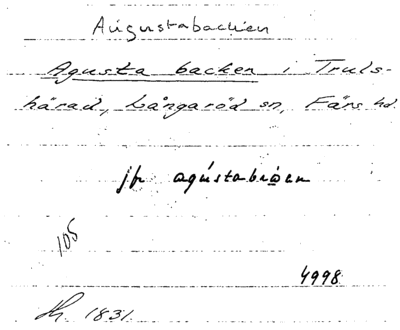 Augustabacken
Agusta backen i Truls-
härad, Långaröd sn, Färs hd.
jfr agústabráen
105
4998
1831.